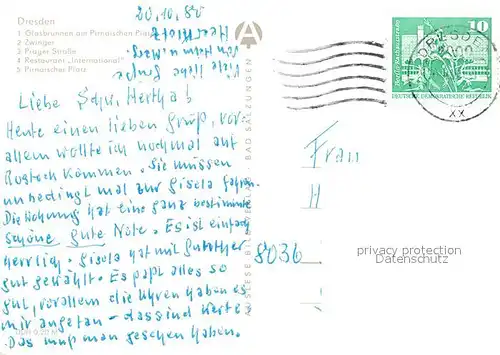 Dresden
1 Glasbrunnen am Pirnaischen Platz
2 Zwinger
3 Prager Straße
4 Restaurant „International"
5 Pirnaischer Platz
20.10.80
Viele liebe Grüße
Liebe Schw. Hertha!
Heute einen lieben Gruß, vor
allem wollte ich nochmal auf
Rostock kommen. Sie müssen
unbedingt mal zur Gisela fahren.
Die Wohnung hat eine ganz bestimmte
schöne gute Note. Es ist einfach
herrlich. Gisela hat mit Gunther
gut gewählt. Es paßt alles so
gut, vor allem die Uhren haben es
mir angetan - das sind Werte.
Das muß man gesehen haben.
BAD SALZUNGEN
A
10
Berlin
DEUTSCHE DEMOKRATISCHE REPUBLIK
XX
Frau
H
8036
privacy protection
Datenschutz